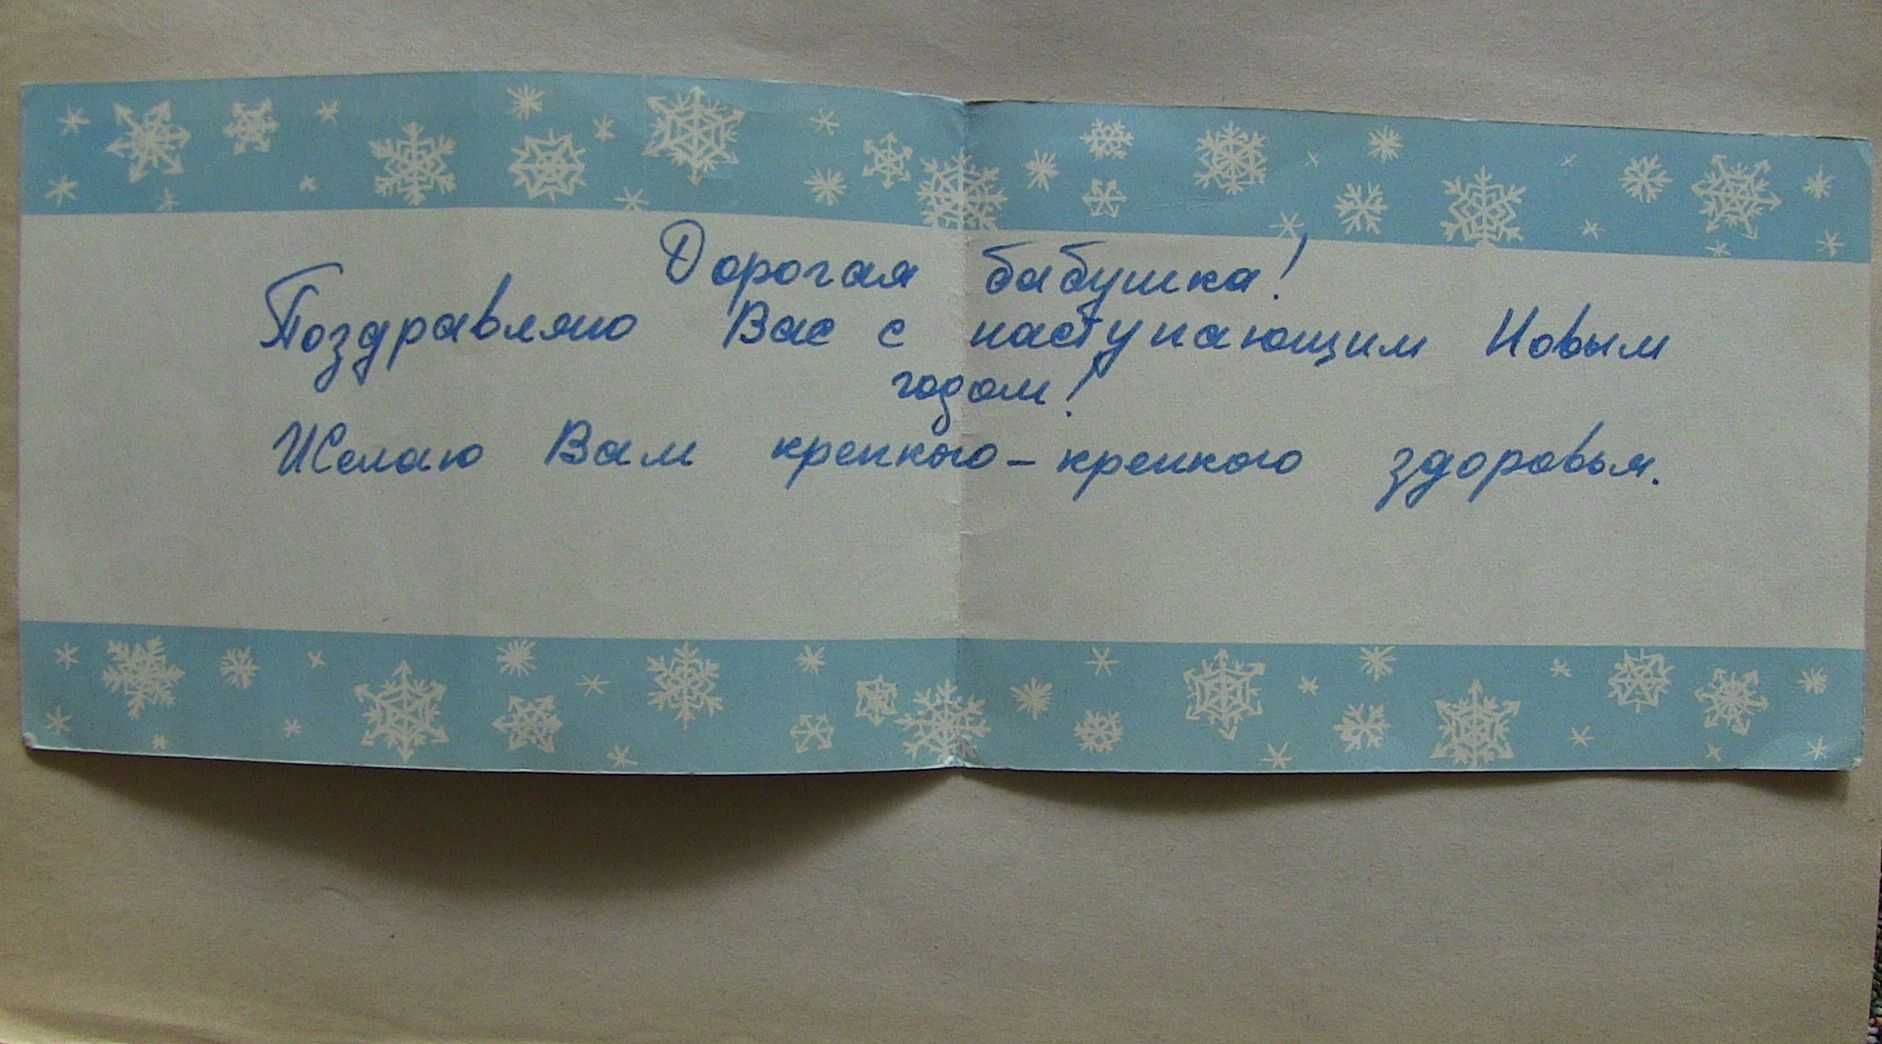 Дорогая бабушка!
Поздравляю Вас с наступающим Новым
годом!
Желаю Вам крепкого-крепкого здоровья.